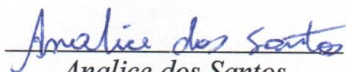 Analice dos Santos
Analice dos Santos